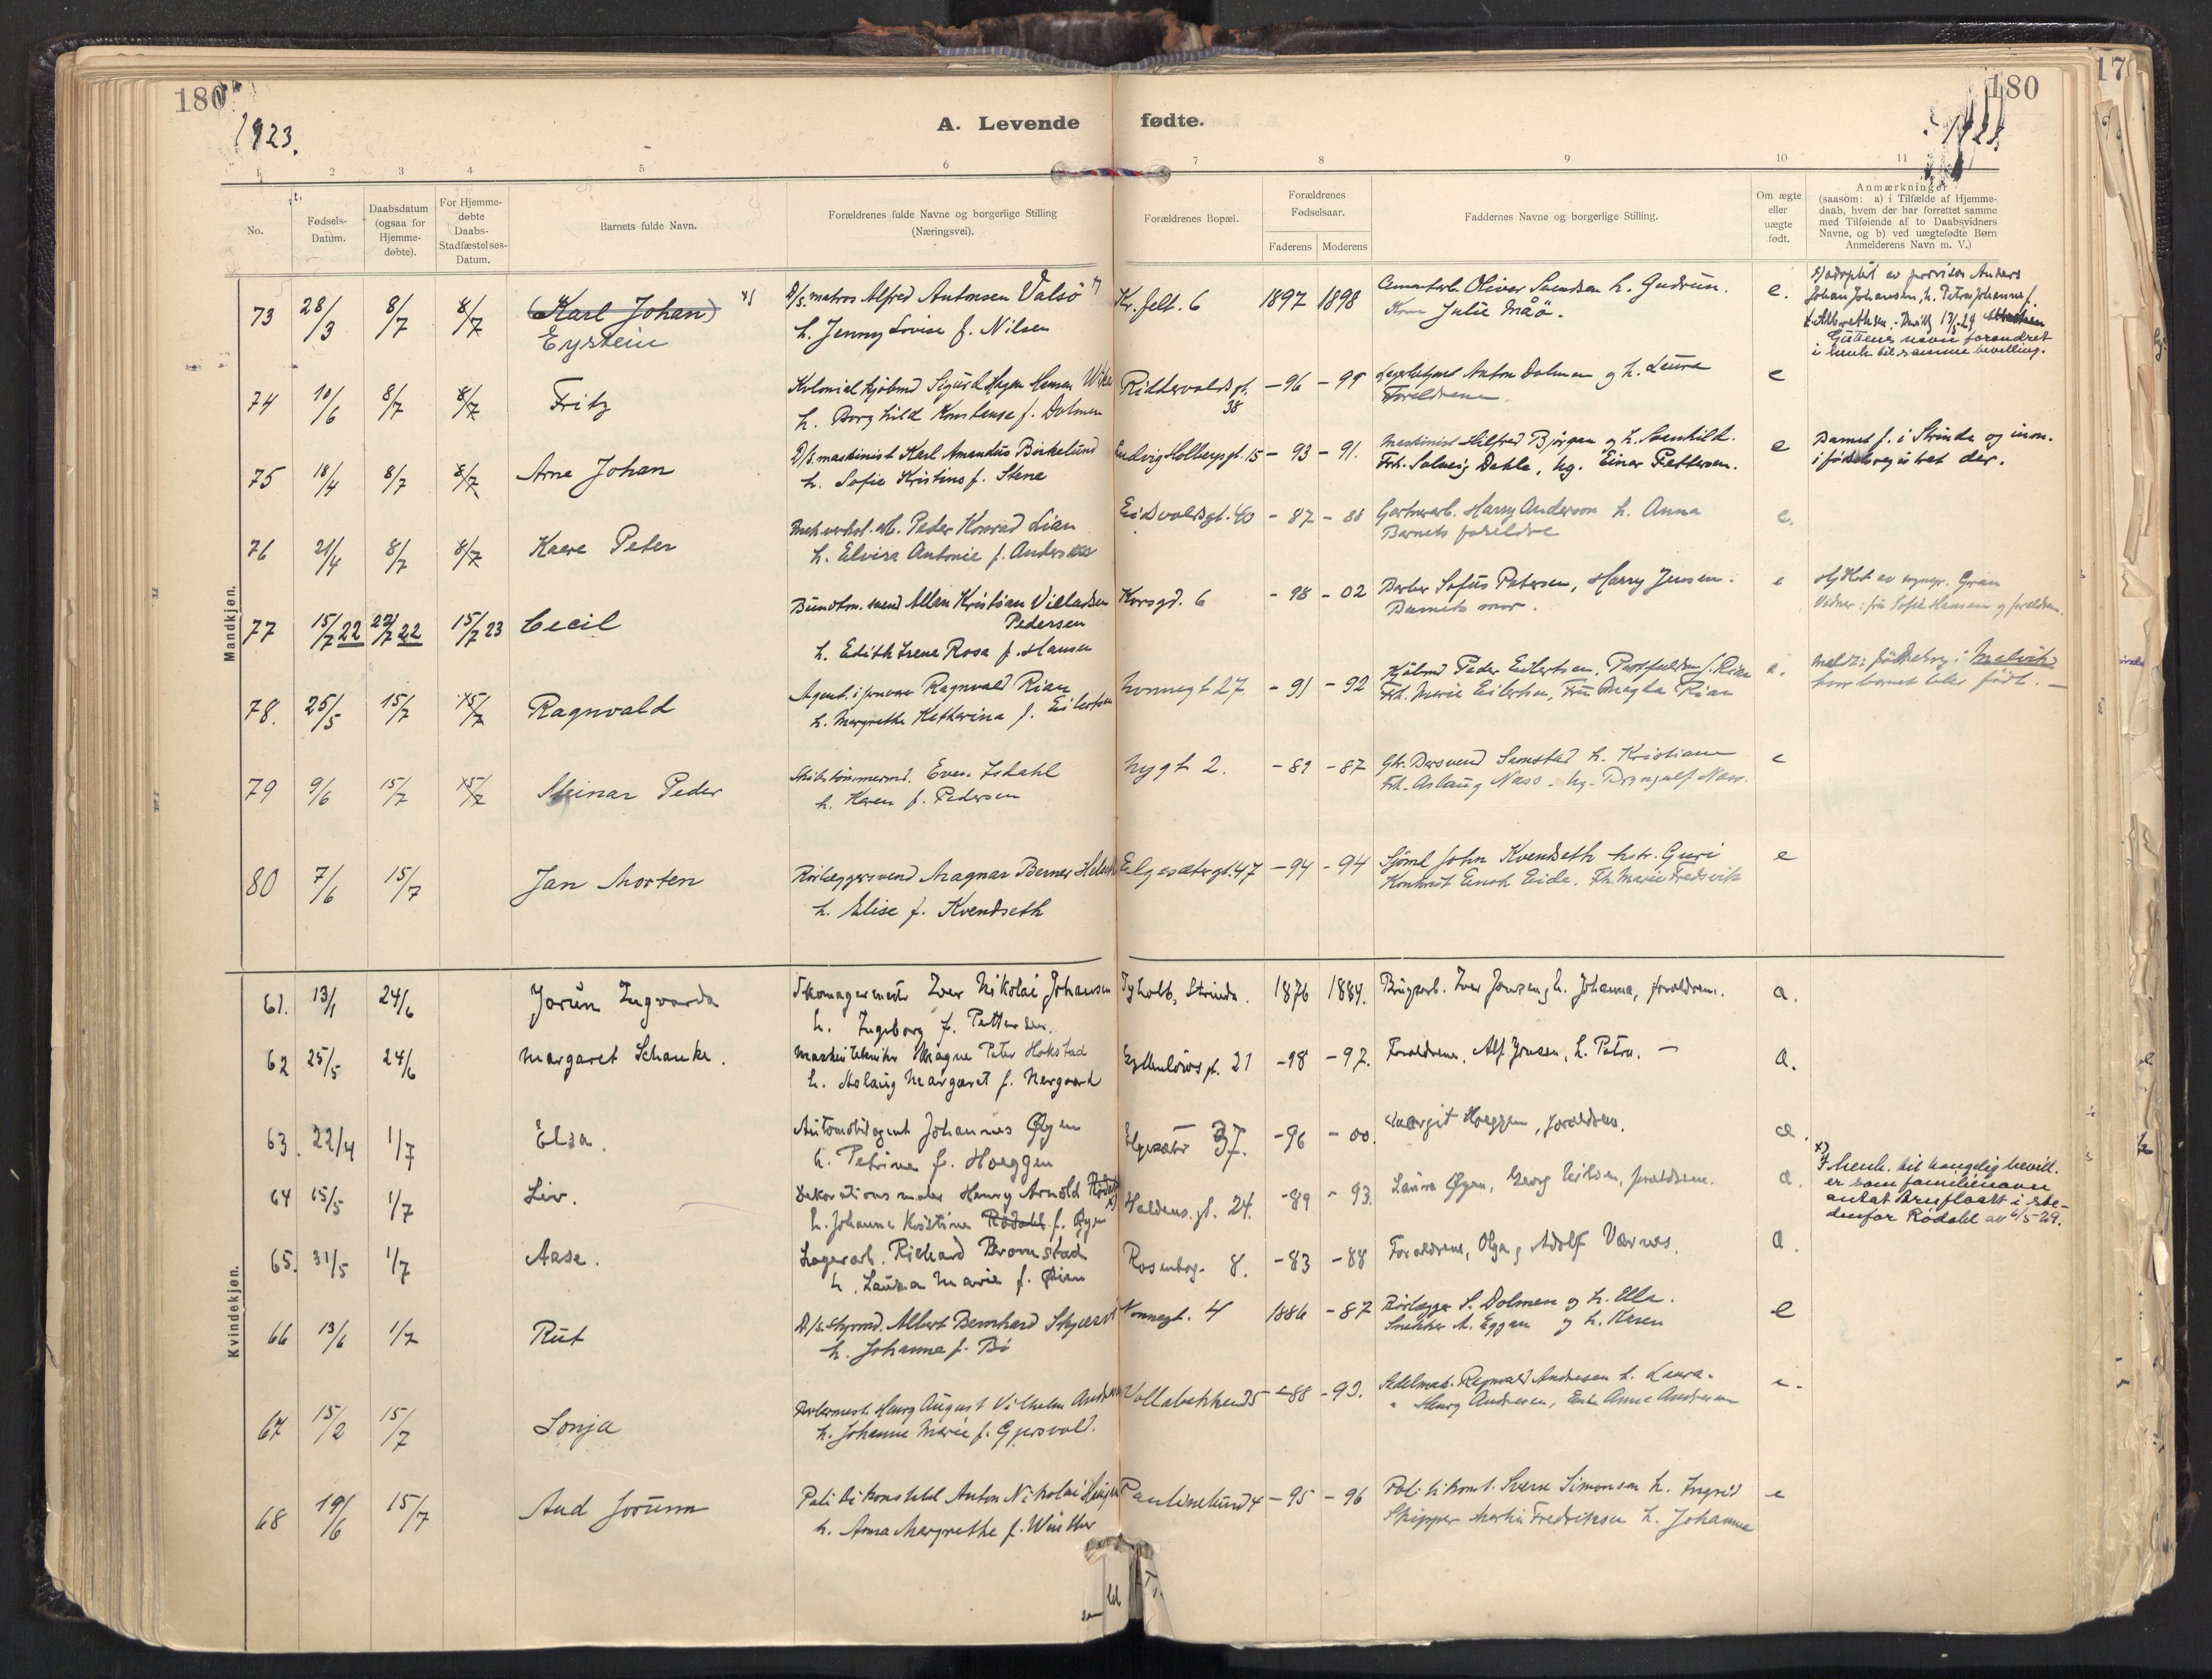 180
180
17
1923.
A. Levende fødte.
1 2 3 4 5 6 7 8 9 10 11
No.
Fødsels-
Datum.
Daabsdatum
(ogsaa for
Hjemme-
døbte).
For Hjemme-
døbte
Daabs-
Stadfæstelses-
Datum.
Barnets fulde Navn.
Forældrenes fulde Navne og borgerlige Stilling
(Næringsvei).
Forældrenes Bopæl.
Forældrenes
Fødselsaar.
Faderens Moderens
Faddernes Navne og borgerlige Stilling.
Om ægte
eller
uægte
født.
Anmærkninger
(saasom: a) i Tilfælde af Hjemme-
daab, hvem der har forrettet samme
med Tilføiende af to Daabsvidners
Navne, og b) ved uægtefødte Børn
Anmelderens Navn m. V.)
Mandkjøn.
73 28/3 8/7 8/7 (Karl Johan) D/s. matros Alfred Antonsen Valsö Kr. felt. 6 1897 1898 Oliver Svendsen h. Gudrun. e.
Eystein h. Jenny Lovise f. Nilsen Julie Måö.
adoptert av Anders
Johan Johansen, h. Petra Johanna f.
Guttens navn forandret
i henh. til samme bevilling.
74 10/6 8/7 8/7 Fritz Sigurd Hagen Hansen Riddervoldsgt. 38 -96 -99 Anton Dolmen og h. Laura e
h. Borghild Konstanse f. Dolmen Foreldrene.
75 18/4 8/7 8/7 Arne Johan D/s. maskinist Karl Amandus Birkelund Ludvig Holbergs gt. 15 -93 -91. Maskinist Hilfred Björgan og h. e
h. Sofie Kristine f. Stene Frk. Solveig Dahle, Einar Pettersen.
Barnet f. i Strinda og inn.
i födselsreg istret der.
76 21/4 8/7 8/7 Kaare Peter Mek. verkst. arb. Peder Konrad Lian Eidsvoldsgt. 40 -87 -88 Harry Anderson h. Anna e.
h. Elvira Antonie f. Andersen Barnets foreldre
77 15/7 22 22/7 22 15/7 23 Cecil Allan Kristian Villadsen Korsgd. 6 -98 -02 Barber Sofus Petersen, Harry Jensen. e
Pedersen Barnets mor.
h. Edith Irene Rosa f. Hansen
Hjdöbt av Gran
Vidner: fru Sofie Hansen og foreldrene.
78. 25/5 15/7 15/7 Ragnvald Agent i Ragnvald Rian Nonnegt 27 -91 -92 Kjöbmd Peder Eilertsen, Rian e.
h. Margrethe Katharina f. Eilertsen Frk. Marie Eilertsen, Fru Magda Rian
Meldt i födselsreg i Malvik
hvor barnet blev födt. -
79 9/6 15/7 15/7 Meinar Peder Skibstömmermd. Even Isdahl Nygt 2. -89 -87 Samstad h. Kristiane e
h. Karen f. Pedersen Frk. Aslaug Næss
80 7/6 15/7 Jan Morten Rörlæggersvend Magnar Berner Elgesætergt. 47 -94 -94 John Kvendseth hstr. Guri e
h. Elise f. Kvendseth Enok Eide. Frk. Marie Fredsvik
Kvindekjøn.
61. 13/1 24/6 Jorun Ingvarda Skomagermester Iver Nikolai Johansen Tyholt, Strinda. 1876 1884. Iver Jensen, h. Johanna, forældrene. a.
h. Ingeborg f. Pettersen.
62 25/5 24/6 Margaret Schanke. Maskintekniker Magne Peter Hokstad Gyllenlöves gt. 21 -98 -97. Forældrene, Alf Jensen, h. Petra. - a.
h. Aslaug Margaret f. Nergaard
63. 22/4 1/7 Elsa. Automobilagent Johannes Øyen Elgesæter 37. -96 -00. Margit Hoeggen, forældrene. a.
h. Petrine f. Hoeggen
64 15/5 1/7 Liv. Dekorationsmaler Henry Arnold Rödahl Haldens. gt. 24. -89 -93. Laura Øyen, Georg Nilsen, forældrene. a.
h. Johanna Kristine Rödahl f. Øyen
x) I henh. til kongelig bevill.
er som familienavn
antat Bruflaatt i ste-
denfor Rödahl av 6/5-29.
65. 31/5 1/7 Aase. Lagerarb. Richard Bromstad Rosenborg. 8. -83 -88 Forældrene, Olga, Adolf Værnes. a.
h. Laura Marie f. Øien
66 13/6 1/7 Rut D/s. styrmd. Albert Bernhard Nonnegt. 4 1886 -87 Rörlægger S. Dolmen og h. Ella. e
h. Johanna f. Bö Snekker A. Eggan og h. Karen
67 15/2 15/7 Sonja Harry August Vilhelm Andresen Vollabakken -88 -92. Ragnvald Andresen h. Laura. e.
h. Johanne Marie f. Gjersvold. Harry Andresen, Enke Anna Andresen
68 19/6 15/7 Aud Jorunn Politikonstabel Anton Nikolai Paulinelund 4 -95 -96 Politikonst. Sverre Simonsen h. Ingrid e
h. Anna Margrethe f. Winther Skipper Martin Fredriksen h. Johanna